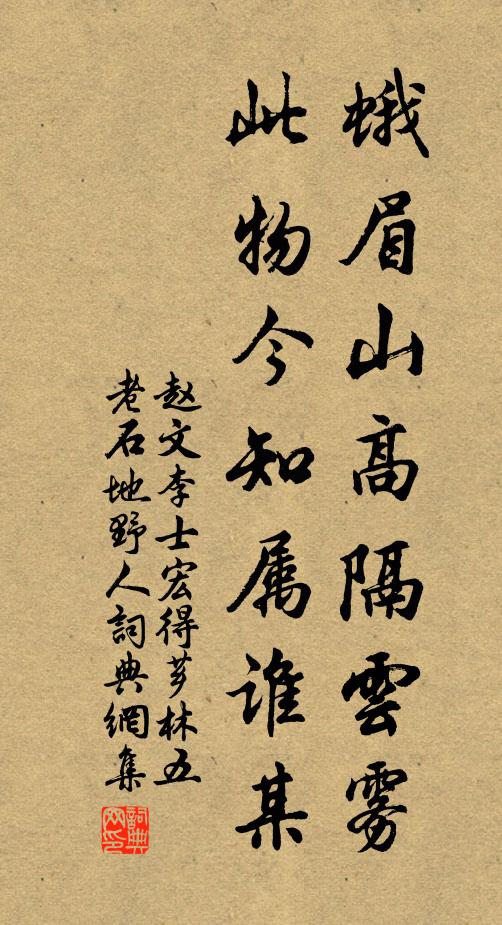 蛾眉山高隔雲雾
此物今知属谁某
赵文李士宏得芗林五
老石地野人詞典網集
詞典网印